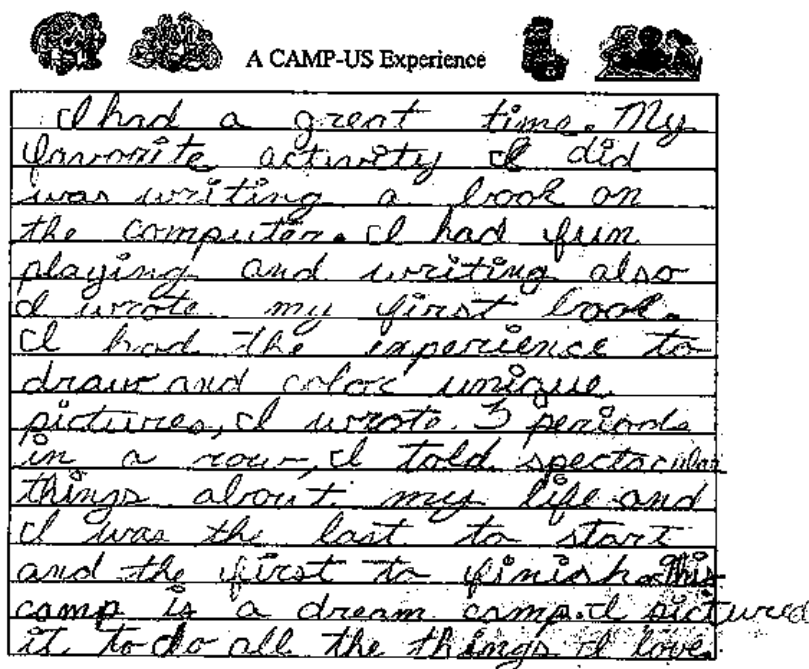 A CAMP-US Experience
I had a great time. My
favorite activity I did
was writing a book on
the computer. I had fun
playing and writing also
I wrote my first book.
I had the experience to
draw and color unique
pictures, I wrote 3 periods
in a row, I told spectacular
things about my life and
I was the last to start
and the first to finish. This
camp is a dream camp. I pictured
it to do all the things I love.